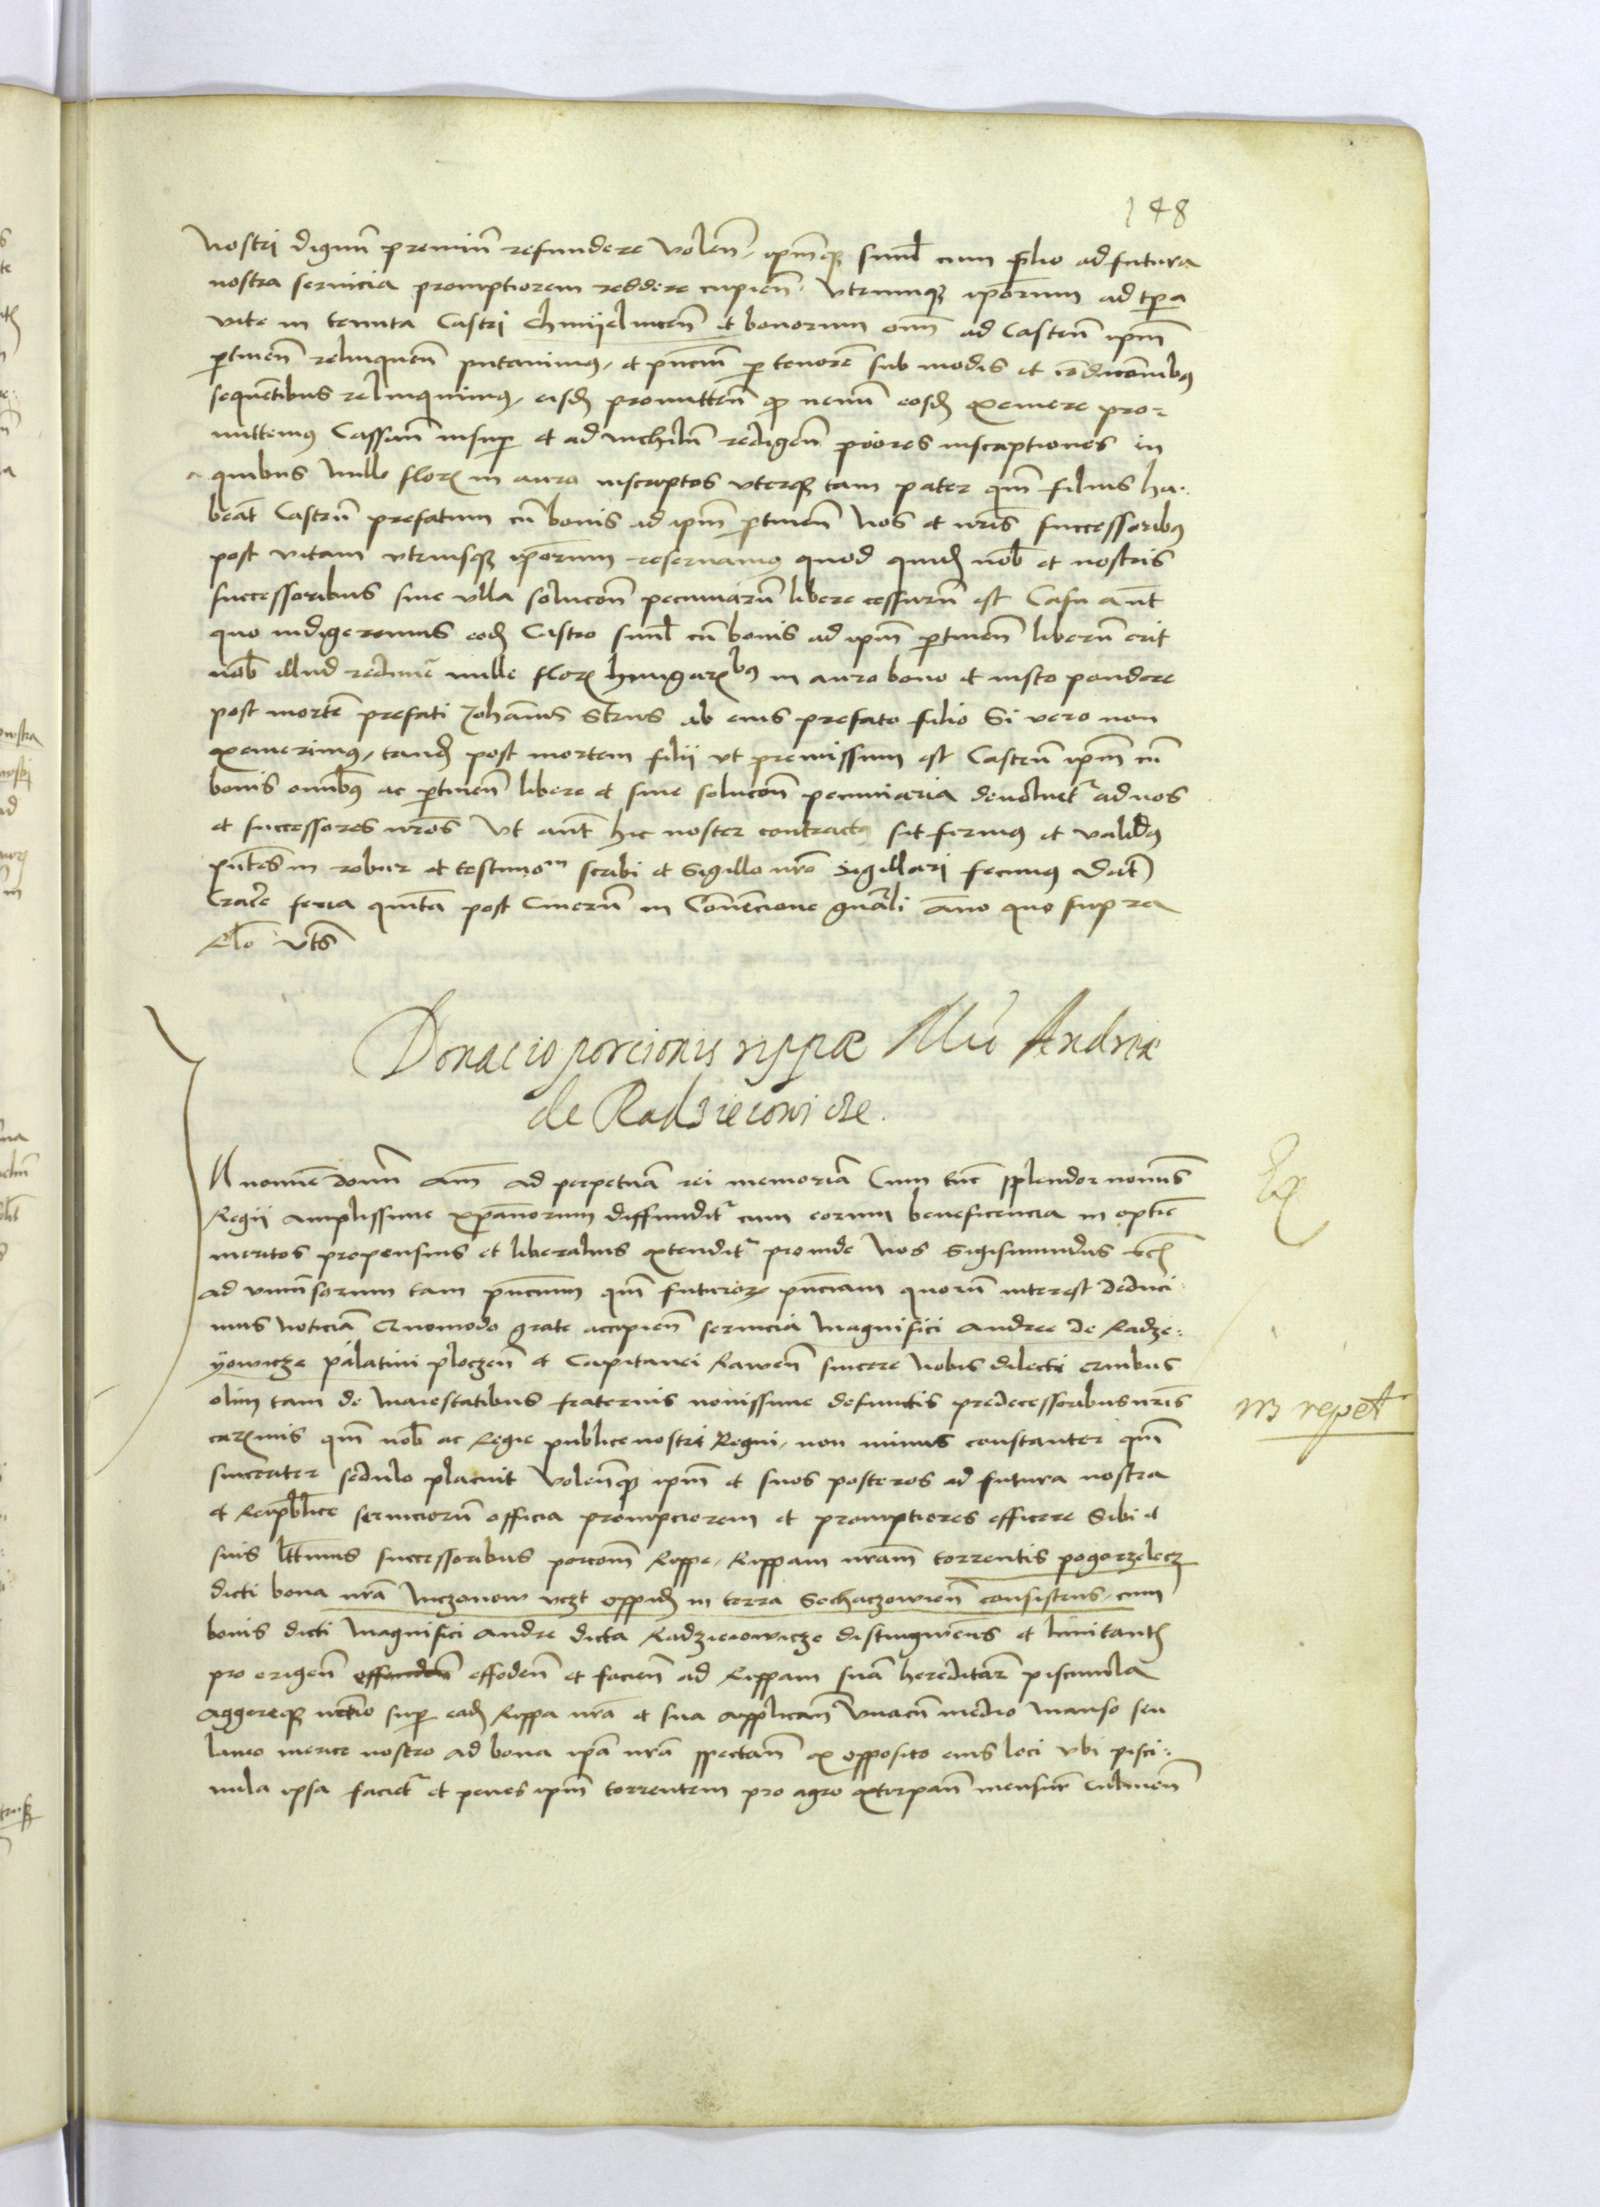 148
nostri dignū premiū refundere volen̄, ip̄mq̨ simul cum filio ad futura
nostra servicia promptiorem reddere cupien̄. Utrumq̨ ip̄orum ad tp̄a
vite in tenuta Castri Chmyelnicen̄ et bonorum om̄ ad Castrū ip̄m
ptinen̄ relinquen̄ putavimus, et pn̄cium p tenorē sub modis et cōdiconibus
sequētibus relinquimus, eisd promitten̄ q nemī eosd exemere pro-
mittemus Cassan̄ insup et ad nichilū redigen̄ p̄ores inscriptiones in
quibus mille flor in auro inscriptos uterq̨ tam pater qm̄ filius ha-
beāt Castrū prefatum cū bonis ad ip̄m ptinen̄ Nos et nr̄is successoribus
post vitam utriusq̨ ip̄orum reservamus quod quid nob et nostris
successoribus sine ulla solucōn pecuniarū libere cessurū est Casu aūt
quo indigeremus eod Castro simul cū bonis ad ip̄m ptinen̄ liberū erit
nob illud redimē mille flor hungaribus in auro bono et iusto pondere
post mortē prefati Johānis Strus ab eius prefato filio Si vero non
exemerimus, tand post mortem filii ut premissum est Castrū ip̄m cū
bonis omībus ac ptinen̄ libere et sine solucōn pecuniaria devolvet ad nos
et successores nr̄os Ut aūt hic noster contractus sit firmus et validus
pn̄tes in robur et testimoᵐ scribi et Sigillo nr̄o sigillari fecimus Dat
Crac̄e feria quīta post Cinerū in Cōvēncione gn̄ali āno quo supra
Rlo uts
Donacio porcionis rippæ Mᶜᵒ Andreæ
de Radzieiowicze.
In nomīe domī am̄ ad perpetuā rei memoriā Cum tūc splendor nomīs
Regii amplissime xp̄ianorum diffundit cum eorum beneficencia in optīe
meritos propensius et liberalius extendit proinde Nos Sigismundus etc
ad univsorum tam pn̄cium qm̄ futuror pn̄ciam quorū interest deduci-
mus noticiā Quomodo grate accipien̄ servicia magnifici Andree de Radze-
yowicze palatini ploczen̄ et Capitanei Rawen̄ sincere nobis dilecti quibus
olim tam de maiestatibus fraternis novissime defunctis predecessoribus nr̄is
carimis qm̄ nob ac Regie publice nostri Regni, non minus constanter qm̄
sinceriter sedulo placuit Volenq̨ ip̄m et suos posteros ad futura nostra
et Reipublice serviciorū officia prompciorem et promptiores efficere Sibi et
suis lttimis successoribus porcōm Rippe, Rippam nr̄am torrentis pogorzelecz
dicti bona nr̄a Mczonow uczt oppid in terra Sochaczowien̄ consistens, cum
bonis dicti magnifici Andre dicta Radzieiowicze distinguiens et limitant
pro erigen̄ effunden̄ effoden̄ et facien̄ ad Rippam suā hereditar̄ piscinula
aggereq̨ nctio sup ead Rippa nr̄a et sua applican̄ Unacū medio manso seu
laneo merice nostro ad bona ip̄a nr̄a spectan̄ ex opposito eius loci ubi pisci-
nula ipsa faciet et penes ip̄m torrentem pro agro extirpan̄ mensur̄ Culmen̄
Ex
NB repet